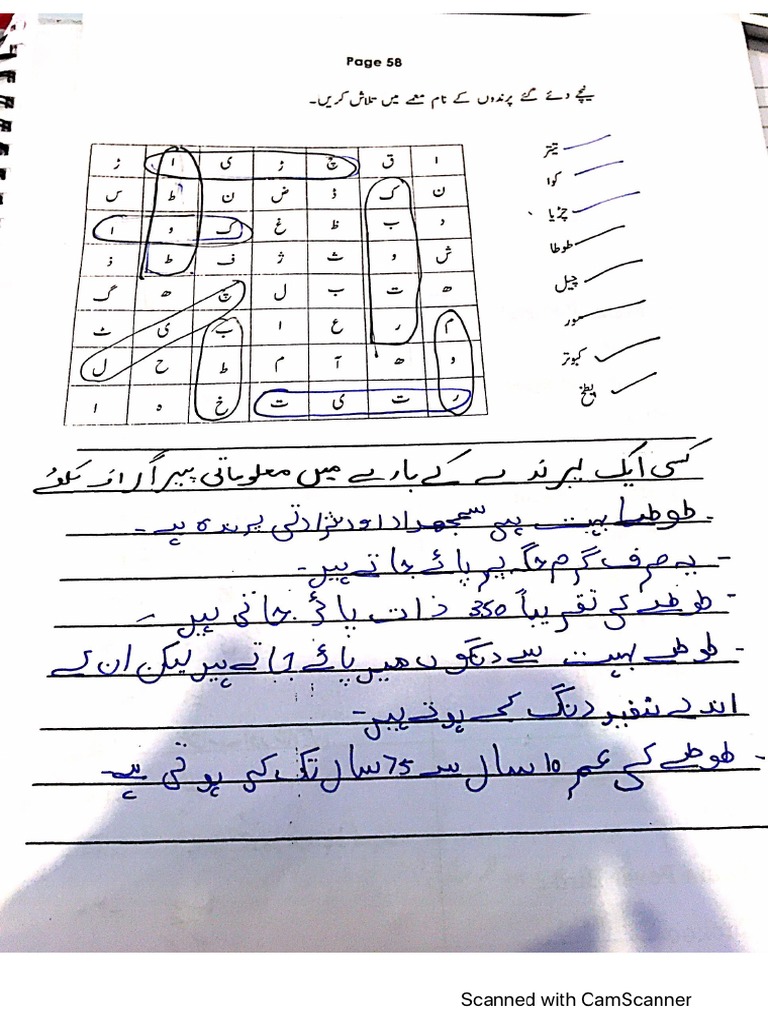 Page 58
نیچے دئے گئے پرندوں کے نام معمے میں تلاش کریں۔
ا ق چ ڑ ی ا ڑ
ن ک ڈ ض ن ط س
د ب ظ غ ک و ا
ش و ث ژ ف ط ذ
ھ ت ب ل چ ھ گ
م ر ع ا ب ی ٹ
و ھ آ م ط ح ل
ر ت ی ت خ ہ ا
تیتر
کوا
چڑیا
طوطا
چیل
مور
کبوتر
بطخ
کسی ایک پرندے کے بارے میں معلوماتی پیراگراف
- طوطا بہت ہی سمجھدار اور پرندہ ہے۔
- یہ صرف گرم جگہ پر پائے جاتے ہیں۔
- طوطے کی تقریباً 350 ذات پائی جاتی ہیں۔
- طوطے بہت سے رنگوں میں پائے جاتے ہیں لیکن ان کے
انڈے سفید رنگ کے ہوتے ہیں۔
- طوطے کی عمر 10 سال سے 75 سال تک کی ہوتی ہے۔
Scanned with CamScanner